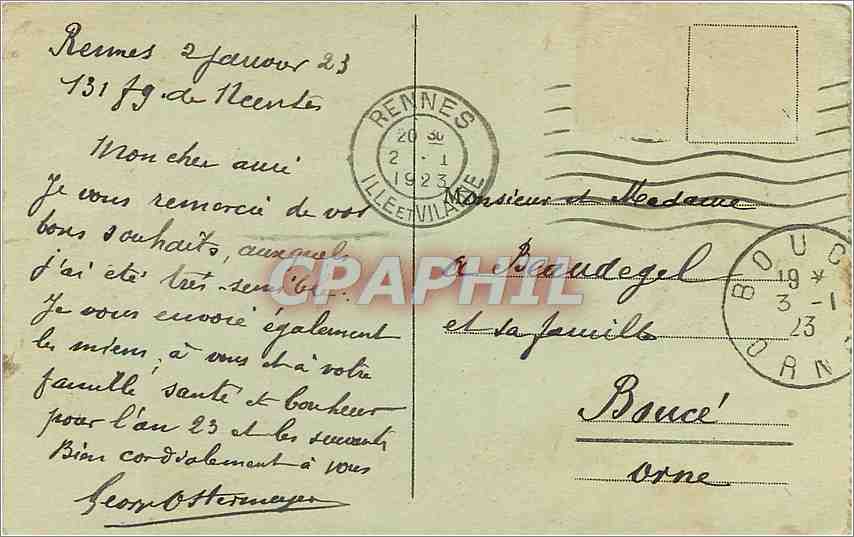 Rennes 2 janvier 23
131 fg. de Nantes
Mon cher ami
Je vous remercie de vos
bons souhaits, auxquels
j'ai été très sensible.
Je vous envoie également
les miens, à vous et à votre
famille santé et bonheur
pour l'an 23 et les suivants
Bien cordialement à vous
Georg Ostermeyer
RENNES
20 30
2 - 1
1923
ILLE ET VILAINE
Monsieur et Madame
a Beaudegel
et sa famille
Boucé
Orne
BOUC
19 *
3 - 1
23
ORN
CPAPHIL